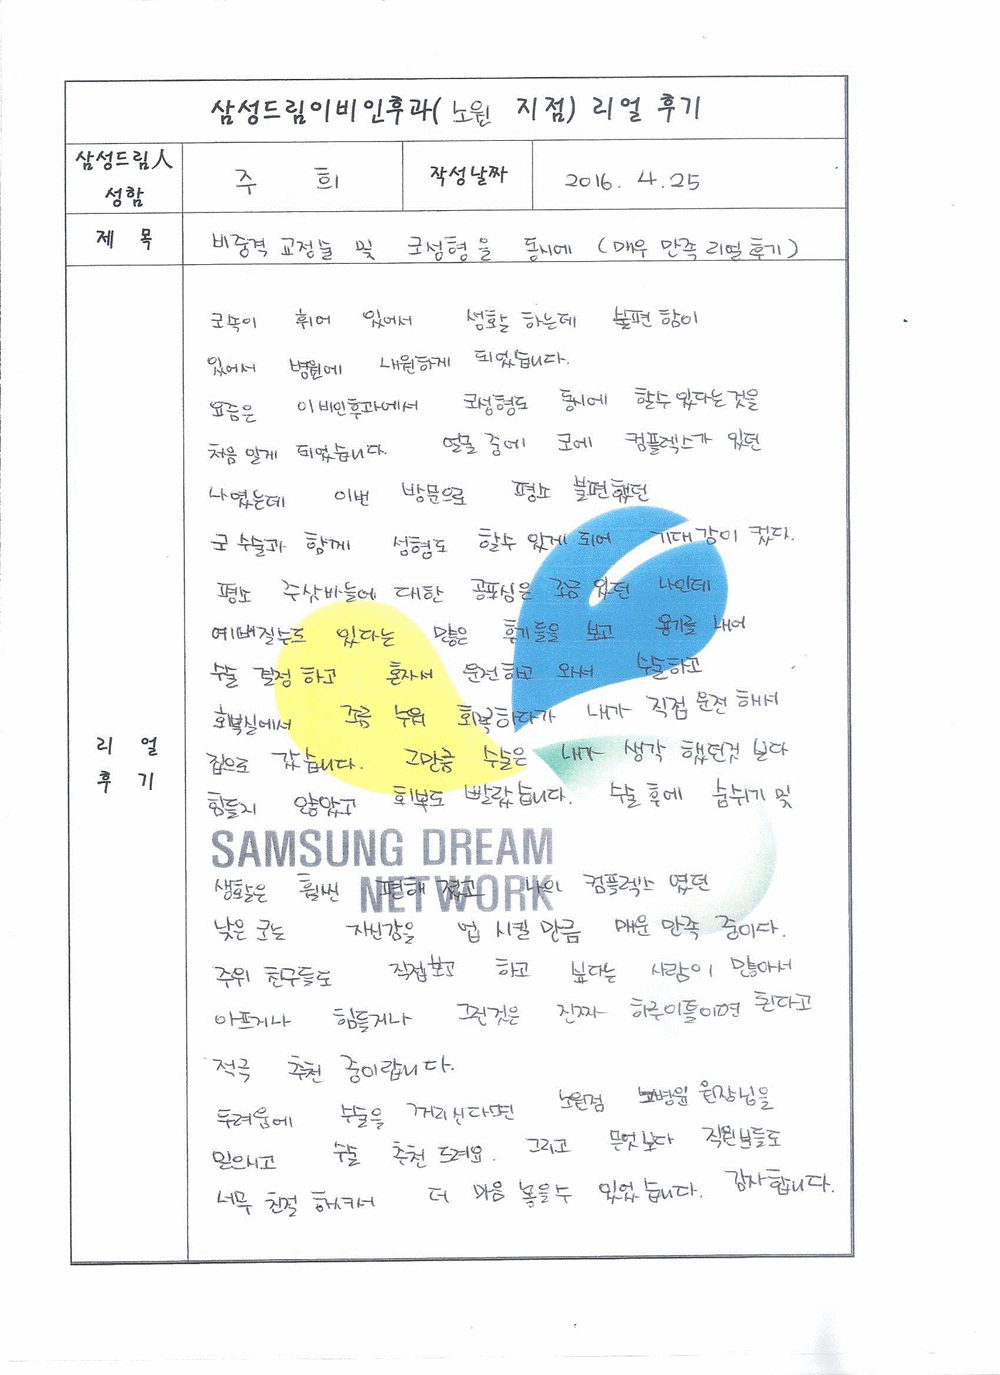 삼성드림이비인후과( 노원 지점) 리얼 후기
삼성드림人 성함
주 희
작성날짜
2016. 4. 25
제 목
비중격 교정술 및 코성형을 동시에 (매우 만족 리얼후기)
리 얼 후 기
코속이 휘어 있어서 생활 하는데 불편함이
있어서 병원에 내원하게 되었습니다.
요즘은 이비인후과에서 코성형도 동시에 할수있다는것을
처음 알게 되었습니다. 얼굴 중에 코에 컴플렉스가 있던
나였는데 이번 방문으로 평소 불편했던
코 수술과 함께 성형도 할수 있게 되어 기대감이 컸다.
평소 주삿바늘에 대한 공포심은 조금 있던 나인데
예뻐질수도 있다는 많은 후기들을 보고 용기를 내어
수술 결정 하고 혼자서 운전하고 와서 수술하고
회복실에서 조금 누워 회복하다가 내가 직접 운전 해서
집으로 갔습니다. 그만큼 수술은 내가 생각 했던것 보다
힘들지 않았고 회복도 빨랐습니다. 수술 후에 숨쉬기 및
SAMSUNG DREAM
NETWORK
생활은 훨씬 편해 졌고 나의 컴플렉스 였던
낮은 코는 자신감을 업 시킬 만큼 매운 만족 중이다.
주위 친구들도 직접보고 하고 싶다는 사람이 많아서
아프거나 힘들거나 그런것은 진짜 하루이틀이면 된다고
적극 추천 중이랍니다.
두려움에 수술을 꺼리신다면 노원점 원장님을
믿으시고 수술 추천 드려요. 그리고 무엇보다 직원분들도
너무 친절 하셔서 더 마음 놓을수 있었습니다. 감사합니다.